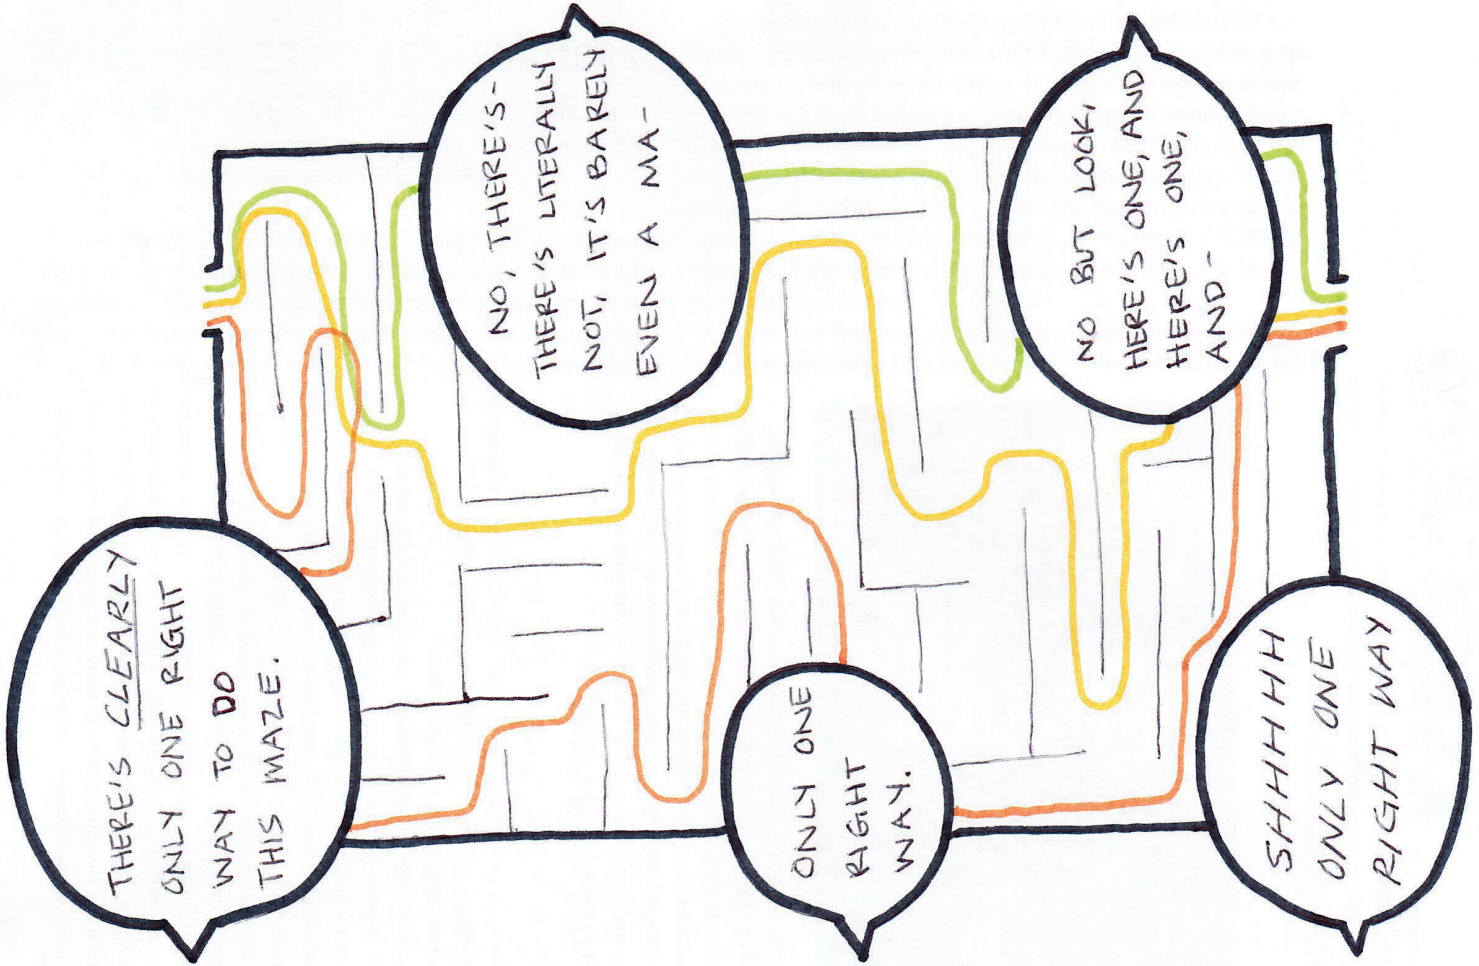 THERE'S CLEARLY
ONLY ONE RIGHT
WAY TO DO
THIS MAZE.
NO, THERE'S-
THERE'S LITERALLY
NOT, IT'S BARELY
EVEN A MA-
ONLY ONE
RIGHT
WAY.
NO BUT LOOK,
HERE'S ONE, AND
HERE'S ONE,
AND-
SHHHHHH
ONLY ONE
RIGHT WAY